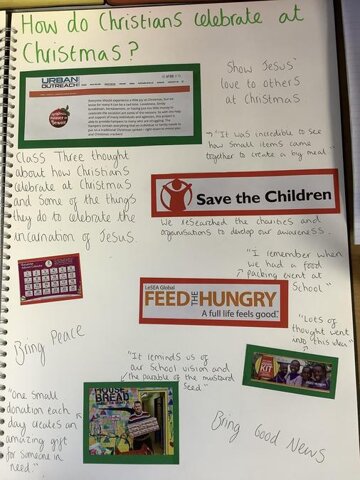 How do Christians celebrate at
Christmas?
URBAN
OUTREACH
Show Jesus'
love to others
at Christmas
→"It was incredible to see
how small items came
together to create a big meal"
Class Three thought
about how Christians
celebrate at Christmas
and some of the things
they do to celebrate the
incarnation of Jesus.
Save the Children
We researched the charities and
organisations to develop our awareness.
"I remember when
we had a food
packing event at
School"
LeSEA Global
FEED THE HUNGRY
A full life feels good
"Lots of
thought went
into this idea"
Bring Peace
"It reminds us of
our School vision and
the parable of the mustard
Seed"
KIT
HOUSE
BREAD
"One small
donation each
day creates an
amazing gift
for someone in
need."
Bring Good News